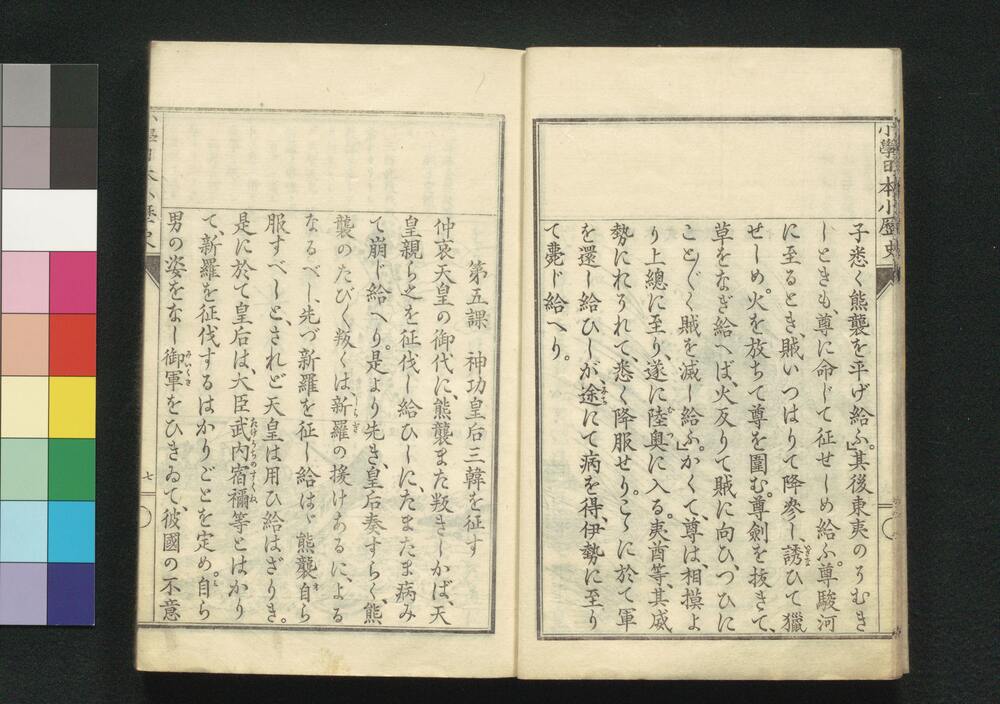 小學日本小歴史
子悉く熊襲を平げ給ふ。」其後東夷のそむき
しときも、尊に命じて征せしめ給ふ。尊駿河
に至るとき、賊いつはりて降參し、誘ひて獵
せしめ。火を放ちて尊を圍む。尊劍を抜きて、
草をなぎ給へば、火反りて賊に向ひ、つひに
こと〴〵く賊を滅し給ふ」かくて、尊は、相摸よ
り上總に至り、遂に陸奥に入る。夷酋等、其威
勢におそれて、悉く降服せり。こゝに於て軍
を還し給ひしが、途にて病を得、伊勢に至り
て薨じ給へり。
第五課　神功皇后三韓を征す
仲哀天皇の御代に、熊襲また叛きしかば、天
皇親ら之を征伐し給ひしに、たまたま病み
て崩じ給へり。是より先き、皇后奏すらく、熊
襲のたび〳〵叛くは新羅の援けあるに、よる
なるべし、先づ新羅を征し給はゞ熊襲自ら
服すべしと、されど天皇は用ひ給はざりき。
是に於て皇后は、大臣武内宿禰等とはかり
て、新羅を征伐するはかりごとを定め。自ら
男の姿をなし御軍をひきゐて、彼國の不意
七